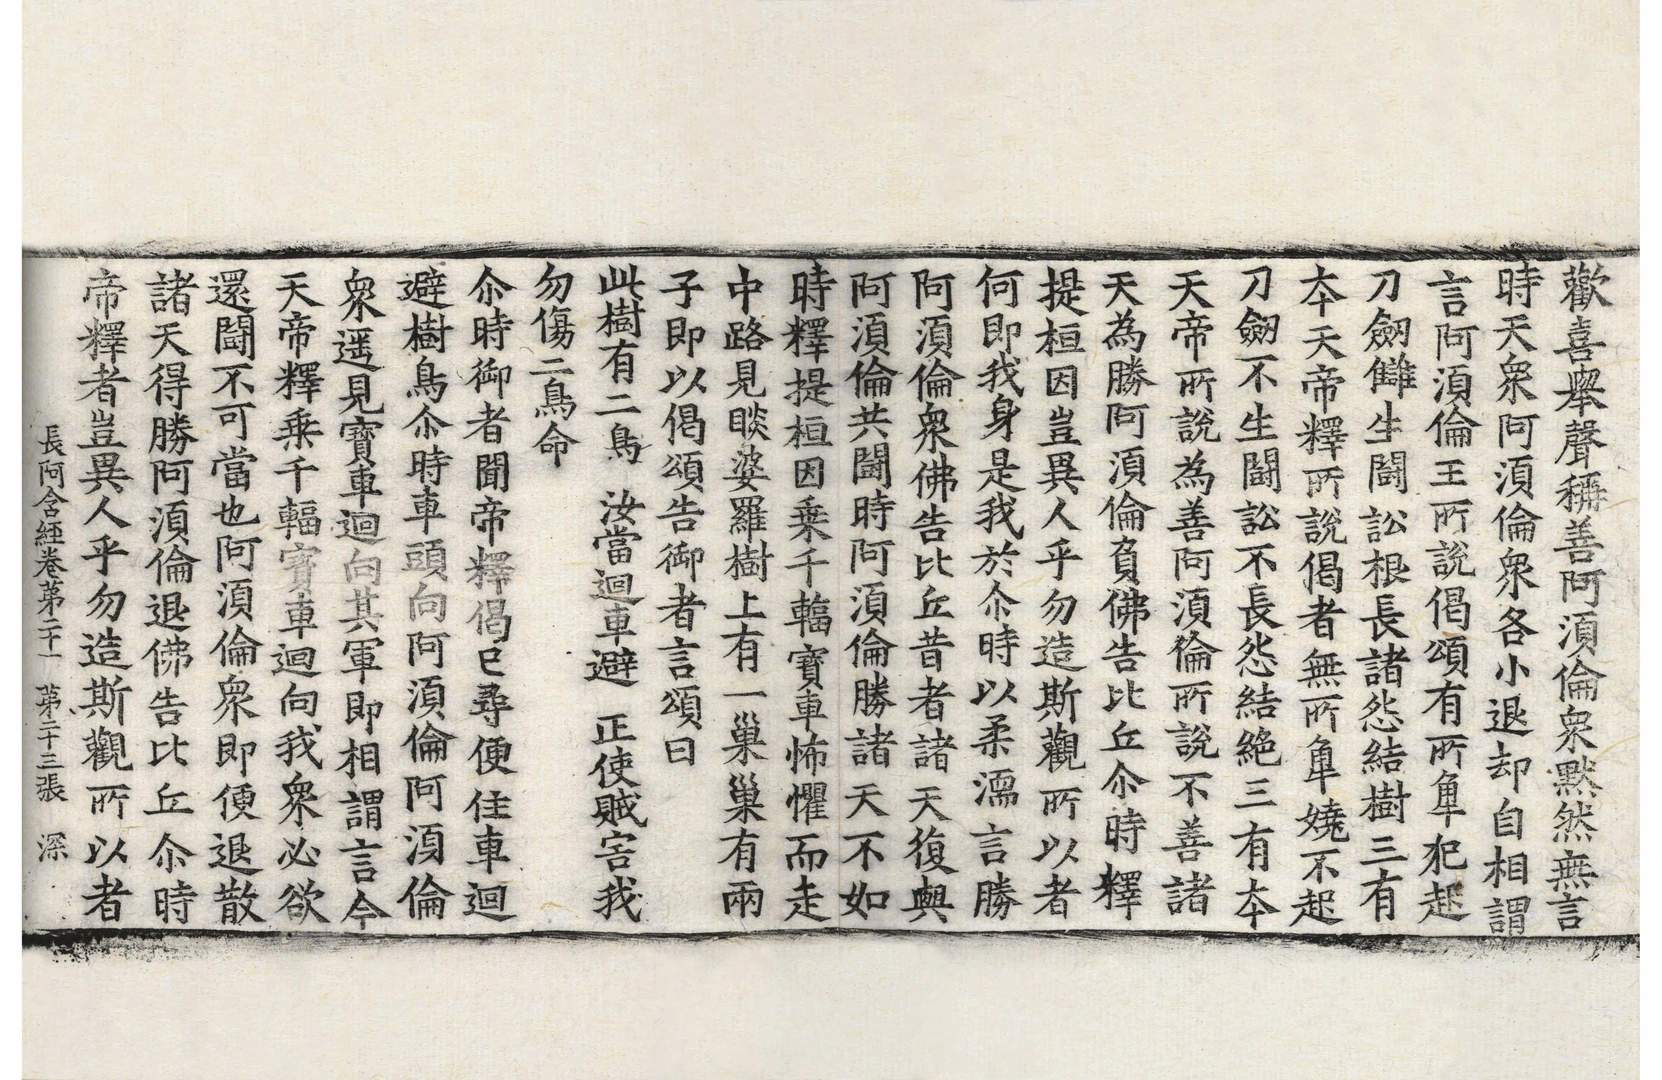 歡喜舉聲稱善阿湏倫衆默然無言
時天衆阿湏倫衆各小退却自相謂
言阿湏倫王所說偈頌有所䡖犯起
刀劒讎生鬪訟根長諸怨結樹三有
夲天帝釋所說偈者無所䡖嬈不起
刀劒不生鬪訟不長怨結絶三有夲
天帝所說為善阿湏倫所說不善諸
天為勝阿湏倫負佛告比丘尒時釋
提桓因豈異人乎勿造斯觀所以者
何即我身是我於尒時以柔濡言勝
阿湏倫衆佛告比丘昔者諸天復與
阿湏倫共鬪時阿湏倫勝諸天不如
時釋提桓因乗千輻寶車怖懼而走
中路見睒婆羅樹上有一巢巢有兩
子即以偈頌告御者言頌曰
此樹有二鳥　汝當迴車避　正使賊害我
勿傷二鳥命
尒時御者聞帝釋偈已尋便住車迴
避樹鳥尒時車頭向阿湏倫阿湏倫
衆遥見寶車迴向其軍即相謂言今
天帝釋乗千輻寶車迴向我衆必欲
還鬪不可當也阿湏倫衆即便退散
諸天得勝阿湏倫退佛告比丘尒時
帝釋者豈異人乎勿造斯觀所以者
長阿含經卷第二十一　第二十三張　深